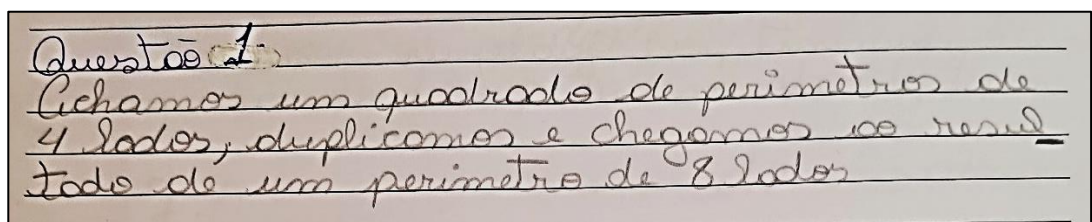 Questão 1
Achamos um quadrado de perimetros de
4 lados, duplicamos e chegamos ao resul
tado de um perimetro de 8 lados